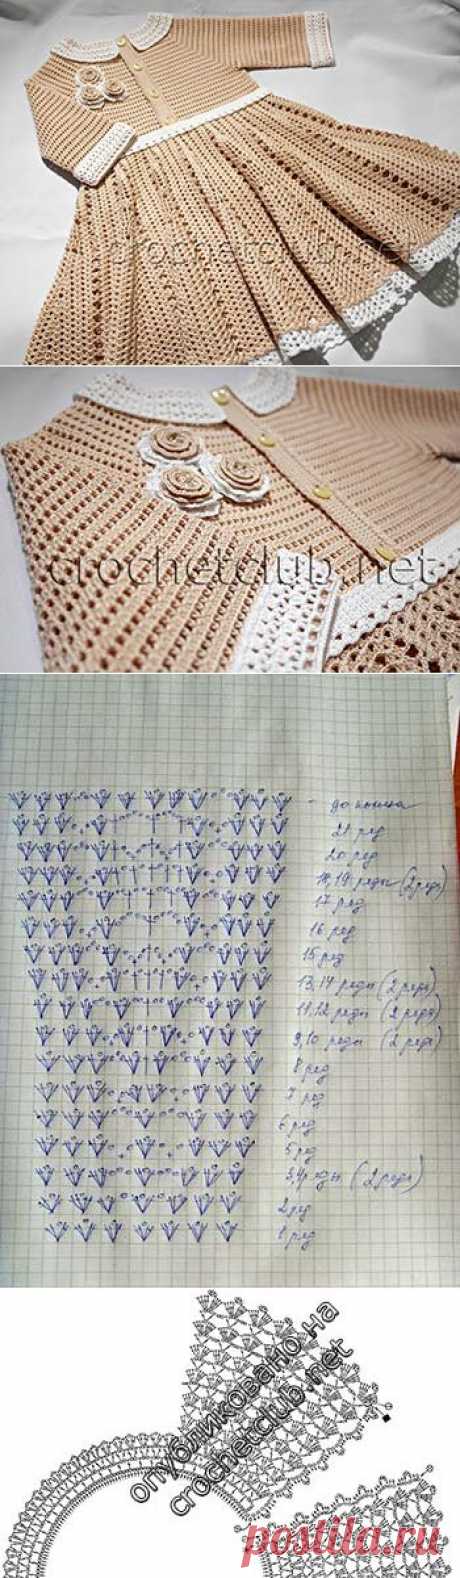 crochetclub.net
crochetclub.net
21 ряд
20 ряд
18,19 ряды (2 ряда)
17 ряд
16 ряд
15 ряд
13,14 ряды (2 ряда)
11,12 ряды (2 ряда)
9,10 ряды (2 ряда)
8 ряд
7 ряд
6 ряд
5 ряд
3,4 ряды (2 ряда)
2 ряд
1 ряд
опубликовано на
crochetclub.net
postila.ru